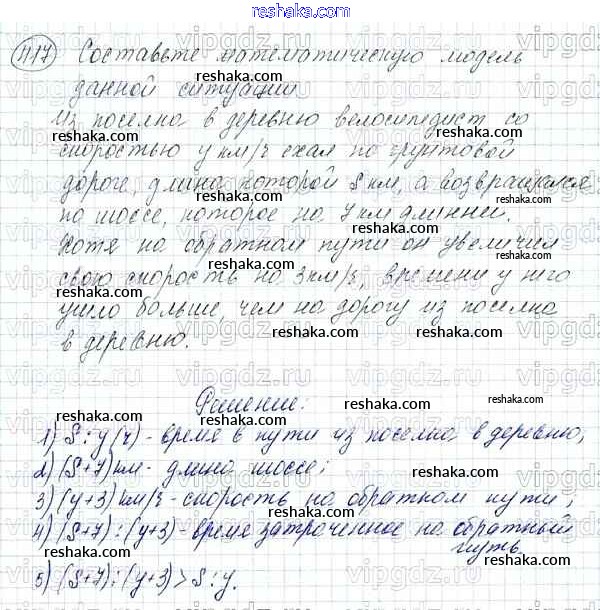 gdz.ru
1117 Составьте математическую модель
reshaka.com
данной ситуации
reshaka.com
Из поселка в деревню велосипедист со
reshaka.com
скоростью y км/ч ехал по грунтовой
reshaka.com
дороге, длина которой S км, а возвращался
reshaka.com
по шоссе, которое на 7 км длинней.
reshaka.com
Хотя на обратном пути он увеличил
reshaka.com
свою скорость на 3 км/ч, времени у него
reshaka.com
ушло больше, чем на дорогу из поселка
reshaka.com
в деревню.
reshaka.com
Решение:
reshaka.com
1) S : y (ч) - время в пути из поселка в деревню;
reshaka.com
2) (S+7) км - длина шоссе;
reshaka.com
3) (y+3) км/ч - скорость на обратном пути;
reshaka.com
4) (S+7) : (y+3) - время затраченное на обратный
путь.
reshaka.com
5) (S+7) : (y+3) > S : y.
reshaka.com